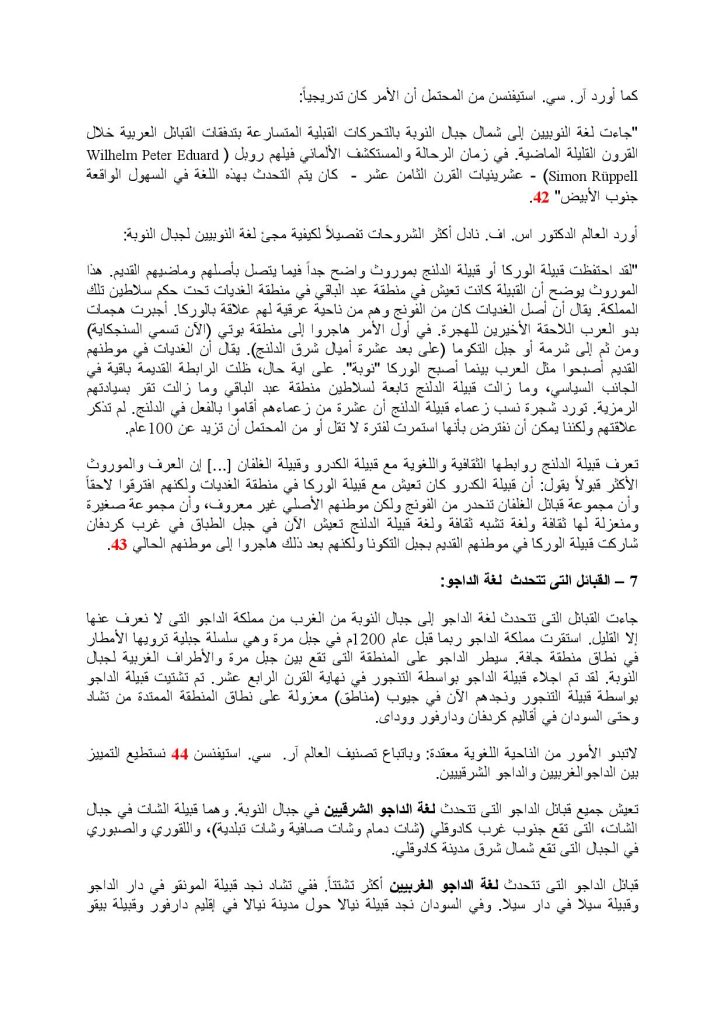 كما أورد آر. سي. استيفنسن من المحتمل أن الأمر كان تدريجياً:
"جاءت لغة النوبيين إلى شمال جبال النوبة بالتحركات القبلية المتسارعة بتدفقات القبائل العربية خلال
القرون القليلة الماضية. في زمان الرحالة والمستكشف الألماني فيلهم روبل ( Wilhelm Peter Eduard
Simon Rüppell) - عشرينيات القرن الثامن عشر - كان يتم التحدث بهذه اللغة في السهول الواقعة
جنوب الأبيض" 42.
أورد العالم الدكتور اس. اف. نادل أكثر الشروحات تفصيلاً لكيفية مجئ لغة النوبيين لجبال النوبة:
"لقد احتفظت قبيلة الوركا أو قبيلة الدلنج بموروث واضح جداً فيما يتصل بأصلهم وماضيهم القديم. هذا
الموروث يوضح أن القبيلة كانت تعيش في منطقة عبد الباقي في منطقة الغديات تحت حكم سلاطين تلك
المملكة. يقال أن أصل الغديات كان من الفونج وهم من ناحية عرقية لهم علاقة بالوركا. أجبرت هجمات
بدو العرب اللاحقة الأخيرين للهجرة. في أول الأمر هاجروا إلى منطقة بوتي (الآن تسمي السنجكاية)
ومن ثم إلى شرمة أو جبل التكوما (على بعد عشرة أميال شرق الدلنج). يقال أن الغديات في موطنهم
القديم أصبحوا مثل العرب بينما أصبح الوركا "نوبة". على اية حال، ظلت الرابطة القديمة باقية في
الجانب السياسي، وما زالت قبيلة الدلنج تابعة لسلاطين منطقة عبد الباقي وما زالت تقر بسيادتهم
الرمزية. تورد شجرة نسب زعماء قبيلة الدلنج أن عشرة من زعماءهم أقاموا بالفعل في الدلنج. لم تذكر
علاقتهم ولكننا يمكن أن نفترض بأنها استمرت لفترة لا تقل أو من المحتمل أن تزيد عن 100عام.
تعرف قبيلة الدلنج روابطها الثقافية واللغوية مع قبيلة الكدرو وقبيلة الغلفان [...] إن العرف والموروث
الأكثر قبولاً يقول: أن قبيلة الكدرو كان تعيش مع قبيلة الوركا في منطقة الغديات ولكنهم افترقوا لاحقاً
وأن مجموعة قبائل الغلفان تنحدر من الفونج ولكن موطنهم الأصلي غير معروف، وأن مجموعة صغيرة
ومنعزلة لها ثقافة ولغة تشبه ثقافة ولغة قبيلة الدلنج تعيش الآن في جبل الطباق في غرب كردفان
شاركت قبيلة الوركا في موطنهم القديم بجبل التكونا ولكنهم بعد ذلك هاجروا إلى موطنهم الحالي 43.
7 – القبائل التى تتحدث لغة الداجو:
جاءت القبائل التى تتحدث لغة الداجو إلى جبال النوبة من الغرب من مملكة الداجو التى لا نعرف عنها
إلا القليل. استقرت مملكة الداجو ربما قبل عام 1200م في جبل مرة وهي سلسلة جبلية ترويها الأمطار
في نطاق منطقة جافة. سيطر الداجو على المنطقة التى تقع بين جبل مرة والأطراف الغربية لجبال
النوبة. لقد تم اجلاء قبيلة الداجو بواسطة التنجور في نهاية القرن الرابع عشر. تم تشتيت قبيلة الداجو
بواسطة قبيلة التنجور ونجدهم الآن في جيوب (مناطق) معزولة على نطاق المنطقة الممتدة من تشاد
وحتى السودان في أقاليم كردفان ودارفور ووداى.
لاتبدو الأمور من الناحية اللغوية معقدة: وباتباع تصنيف العالم آر. سي. استيفنسن 44 نستطيع التمييز
بين الداجوالغربيين والداجو الشرقييين.
تعيش جميع قبائل الداجو التى تتحدث لغة الداجو الشرقيين في جبال النوبة. وهما قبيلة الشات في جبال
الشات، التى تقع جنوب غرب كادوقلي (شات دمام وشات صافية وشات تبلدية)، واللقوري والصبوري
في الجبال التى تقع شمال شرق مدينة كادوقلي.
قبائل الداجو التى تتحدث لغة الداجو الغربيين أكثر تشتتاً. ففي تشاد نجد قبيلة المونقو في دار الداجو
وقبيلة سيلا في دار سيلا. وفي السودان نجد قبيلة نيالا حول مدينة نيالا في إقليم دارفور وقبيلة بيقو